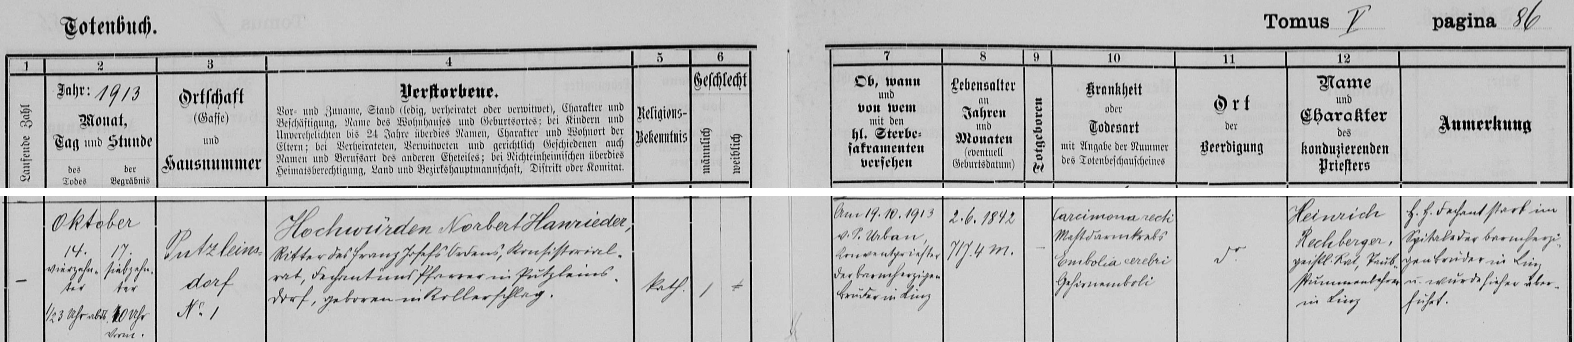 Totenbuch.
Tomus V pagina 86
1
2
3
4
5
6
7
8
9
10
11
12
Laufende Zahl
Jahr: 1913
Monat,
Tag und Stunde
des Todes
der Begräbnis
Ortschaft
(Gasse)
und
Hausnummer
Verstorbene.
Vor- und Zuname, Stand (ledig, verheiratet oder verwitwet), Charakter und
Beschäftigung, Name des Wohnhauses und Geburtsortes; bei Kindern und
Unverehelichten bis 24 Jahre überdies Namen, Charakter und Wohnort der
Eltern; bei Verheirateten, Verwitweten und gerichtlich Geschiedenen auch
Namen und Berufsart des anderen Eheteiles; bei Nichteinheimischen überdies
Heimatsberechtigung, Land und Bezirkshauptmannschaft, Distrikt oder Komitat.
Religions-
Bekenntnis
Geschlecht
männlich
weiblich
Ob, wann
und
von wem
mit den
hl. Sterbe-
sakramenten
versehen
Lebensalter
an
Jahren
und
Monaten
(eventuell
Geburtsdatum)
Totgeboren
Krankheit
oder
Todesart
mit Angabe der Nummer
des Totenbeschauscheines
Ort
der
Beerdigung
Name
und
Charakter
des
konduzierenden
Priesters
Anmerkung
–
Oktober
14. 17.
vierzehn- siebzehn-
ter ter
1/23 Uhr 10 Uhr
Vorm.
Putzleins-
dorf
No. 1
Hochwürden Norbert Hanrieder,
Ritter des Franz Josefs Ordens, Konsistorial-
rat, Dechant und Pfarrer in Putzleins-
dorf, geboren in Kollerschlag.
kath.
1
Am 19.10.1913
v. P. Urban,
Conventpriester
der barmherzigen
Brüder in Linz
2.6.1842
71 J. 4 M.
–
Carcinoma recti
Mastdarmkrebs
Embolia cerebri
Gehirnemboli
Heinrich
Rechberger,
geistl. Rat, Taub-
stummen
in Linz
H. H. Dechant starb im
Spitale der barmherzi-
gen Brüder in Linz
u. wurde hieher über-
führt.